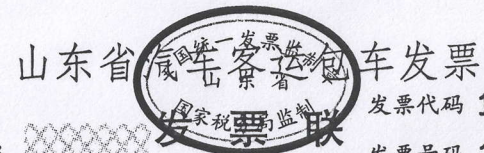 山东省汽车客运包车发票
全国统一发票监制章
山东省
国家税务局监制
发票联
发票代码
发票号码